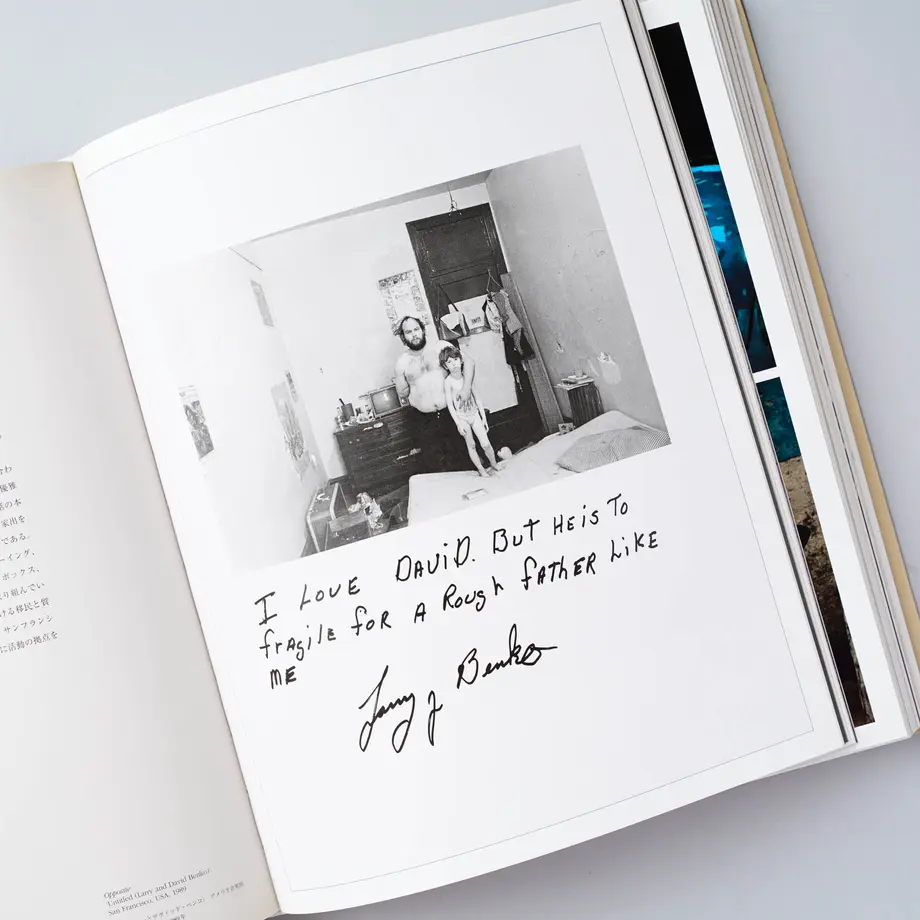 優雅
の本
家出を
である。
ーイング、
ボックス、
り組んでい
ける移民と貧
サンフランシ
に活動の拠点を
Opposite
Untitled (Larry and David Benko),
San Francisco, USA, 1989
I LOVE DAVID. BUT HE IS TO
fRAgilE foR A Rough fATHER LiKE
ME
Larry J Benko